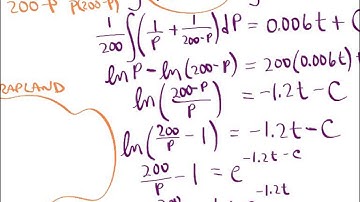 200-P P(200-P)
1/200 ∫(1/P + 1/200-P)dP = 0.006t + C
lnP - ln(200-P) = 200(0.006t)+
ln(200-P/P) = -1.2t - C
RAPLAND
ln(200/P - 1) = -1.2t - C
200/P - 1 = e^-1.2t - C
200 -1.2t